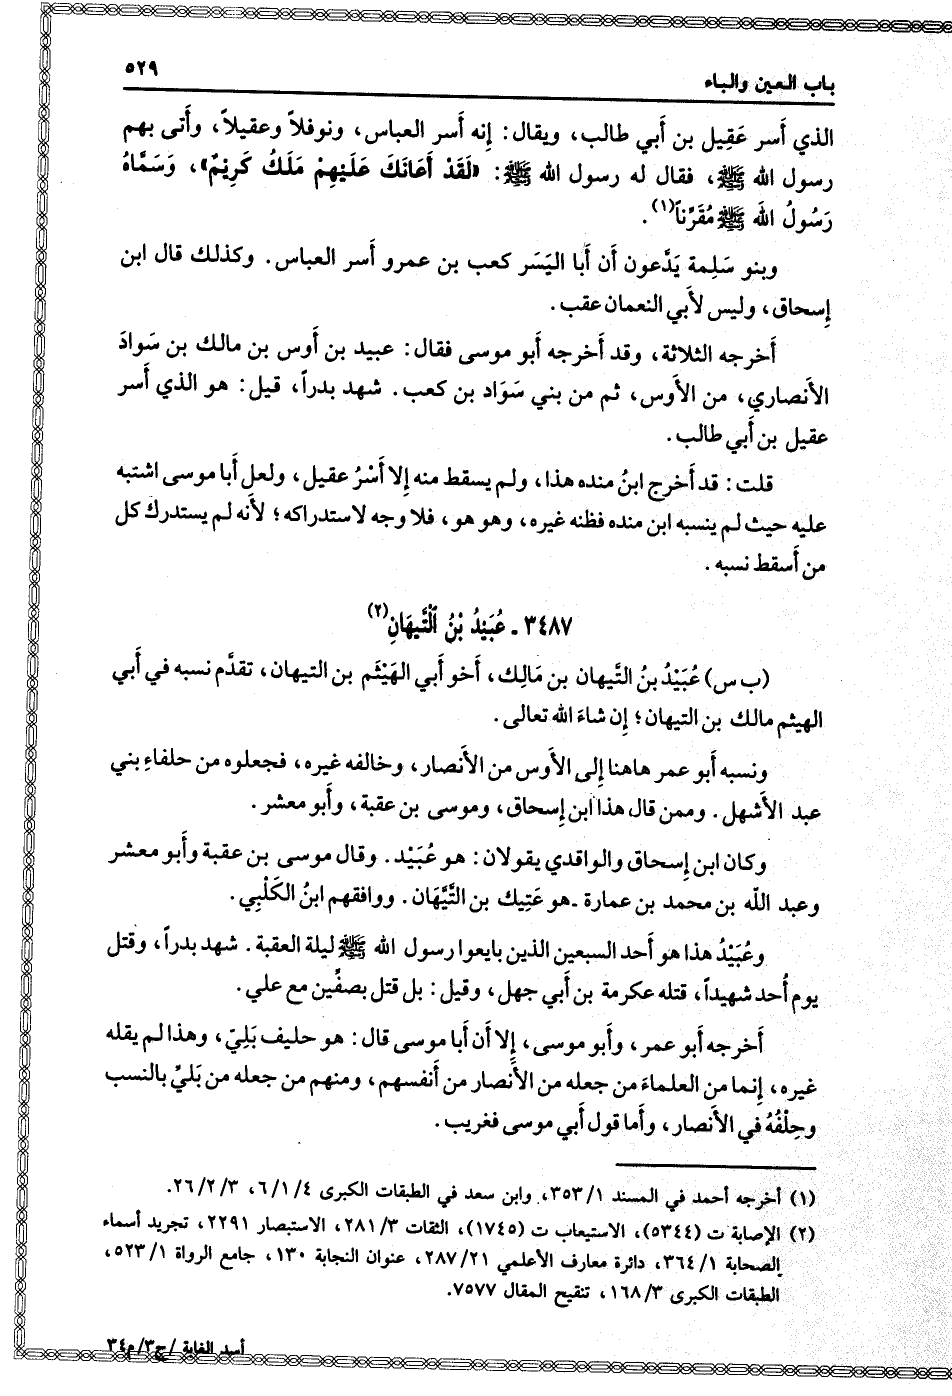 باب العين والباء ٥٢٩
الذي أَسر عَقِيل بن أَبي طالب، ويقال: إنه أَسر العباس، ونوفلاً وعقيلاً، وأَتى بهم
رسول الله ﷺ، فقال له رسول الله ﷺ: «لَقَدْ أَعَانَكَ عَلَيْهِمْ مَلَكٌ كَرِيْمٌ»، وَسَمَّاهُ
رَسُولُ اللَّه ﷺ مُقَرِّناً(١).
وبنو سَلِمة يَدَّعون أن أَبا اليَسَر كعب بن عمرو أَسر العباس. وكذلك قال ابن
إِسحاق، وليس لأَبي النعمان عقب.
أَخرجه الثلاثة، وقد أَخرجه أبو موسى فقال: عبيد بن أَوس بن مالك بن سَوادَ
الأَنصاري، من الأَوس، ثم من بني سَوَاد بن كعب. شهد بدراً، قيل: هو الذي أَسر
عقيل بن أَبي طالب.
قلت: قد أَخرج ابنُ منده هذا، ولم يسقط منه إلا أَسْرُ عقيل، ولعل أَبا موسى اشتبه
عليه حيث لم ينسبه ابن منده فظنه غيره، وهو هو، فلا وجه لاستدراكه؛ لأَنه لم يستدرك كل
من أَسقط نسبه.
٣٤٨٧ ـ عُبَيْدُ بْنُ ٱلْتَّيهَانِ(٢)
(ب س) عُبَيْدُ بنُ التَّيهان بن مَالِك، أَخو أَبي الهَيْثَم بن التيهان، تقدَّم نسبه في أَبي
الهيثم مالك بن التيهان؛ إِن شاءَ الله تعالى.
ونسبه أَبو عمر هاهنا إِلى الأَوس من الأَنصار، وخالفه غيره، فجعلوه من حلفاءِ بني
عبد الأَشهل. وممن قال هذا ابن إِسحاق، وموسى بن عقبة، وأَبو معشر.
وكان ابن إِسحاق والواقدي يقولان: هو عُبَيْد. وقال موسى بن عقبة وأَبو معشر
وعبد اللّه بن محمد بن عمارة ـ هو عَتِيك بن التَّيَّهَان. ووافقهم ابنُ الكَلْبِي.
وعُبَيْدُ هذا هو أَحد السبعين الذين بايعوا رسول الله ﷺ ليلة العقبة. شهد بدراً، وقتل
يوم أُحد شهيداً، قتله عكرمة بن أَبي جهل، وقيل: بل قتل بصفِّين مع علي.
أَخرجه أَبو عمر، وأَبو موسى، إِلا أَن أَبا موسى قال: هو حليف بَلِيّ، وهذا لم يقله
غيره، إِنما من العلماءَ من جعله من الأَنصار من أَنفسهم، ومنهم من جعله من بَليِّ بالنسب
وحِلْفُهُ في الأَنصار، وأَما قول أَبي موسى فغريب.
(١) أخرجه أحمد في المسند ٣٥٣/١، وابن سعد في الطبقات الكبرى ٦/١/٤، ٢٦/٢/٣.
(٢) الإصابة ت (٥٣٤٤)، الاستيعاب ت (١٧٤٥)، الثقات ٢٨١/٣، الاستبصار ٢٢٩١، تجريد أسماء
الصحابة ٣٦٤/١، دائرة معارف الأعلمي ٢٨٧/٢١، عنوان النجابة ١٣٠، جامع الرواة ٥٢٣/١،
الطبقات الكبرى ١٦٨/٣، تنقيح المقال ٧٥٧٧.
أسد الغابة /ج٣/م٣٤